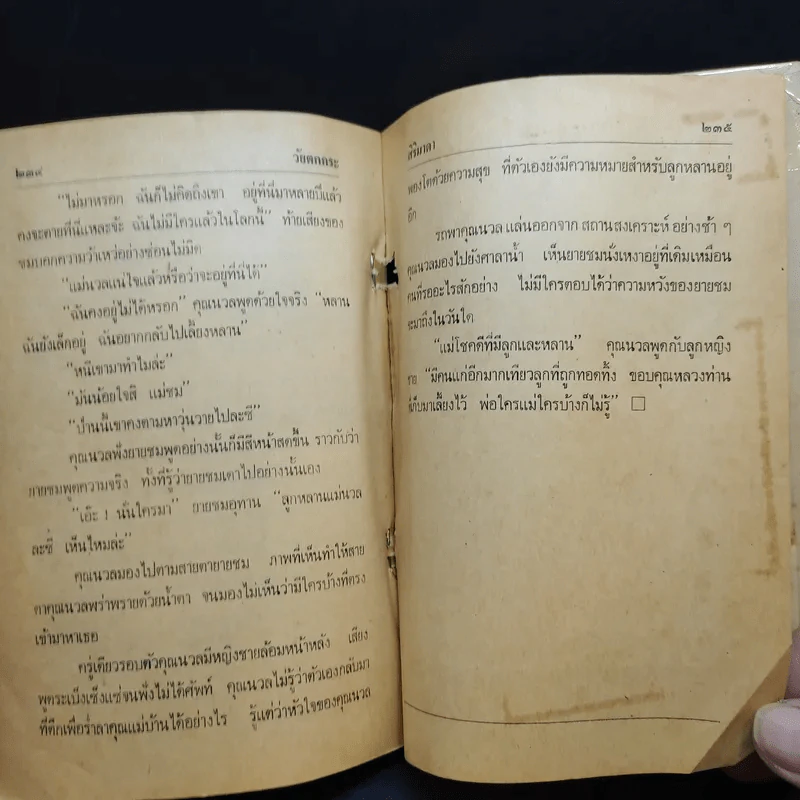 ๒๓๔ วัยตกกระ
"ไม่มาหรอก ฉันก็ไม่คิดถึงเขา อยู่ที่นี่มาหลายปีแล้ว
คงจะตายที่นี่แหละจ้ะ ฉันไม่มีใครแล้วในโลกนี้" ท้ายเสียงของ
ชมบอกความว้าเหว่อย่างซ่อนไม่มิด
"แม่นวลแน่ใจแล้วหรือว่าจะอยู่ที่นี่ได้"
"ฉันคงอยู่ไม่ได้หรอก" คุณนวลพูดด้วยใจจริง "หลาน
ฉันยังเล็กอยู่ ฉันอยากกลับไปเลี้ยงหลาน"
"หนีเขามาทำไมล่ะ"
"มันน้อยใจสิ แม่ชม"
"ป่านนี้เขาคงตามหาวุ่นวายไปละซี"
คุณนวลฟังยายชมพูดอย่างนั้นก็มีสีหน้าสดชื่น ราวกับว่า
ยายชมพูดความจริง ทั้งที่รู้ว่ายายชมเดาไปอย่างนั้นเอง
"เอ๊ะ ! นั่นใครมา" ยายชมอุทาน "ลูกหลานแม่นวล
ละซี่ เห็นไหมล่ะ"
คุณนวลมองไปตามสายตายายชม ภาพที่เห็นทำให้สาย
ตาคุณนวลพร่าพรายด้วยน้ำตา จนมองไม่เห็นว่ามีใครบ้างที่ตรง
เข้ามาหาเธอ
ครู่เดียวรอบตัวคุณนวลมีหญิงชายล้อมหน้าหลัง เสียง
พูดระเบ็งเซ็งแซ่จนฟังไม่ได้ศัพท์ คุณนวลไม่รู้ว่าตัวเองกลับมา
ที่ตึกเพื่อร่ำลาคุณแม่บ้านได้อย่างไร รู้แต่ว่าหัวใจของคุณนวล
สิริมาดา ๒๓๕
พองโตด้วยความสุข ที่ตัวเองยังมีความหมายสำหรับลูกหลานอยู่
อีก
รถพาคุณนวล แล่นออกจาก สถานสงเคราะห์ อย่างช้า ๆ
คุณนวลมองไปยังศาลาน้ำ เห็นยายชมนั่งเหงาอยู่ที่เดิมเหมือน
คนที่รออะไรสักอย่าง ไม่มีใครตอบได้ว่าความหวังของยายชม
จะมาถึงในวันใด
"แม่โชคดีที่มีลูกและหลาน" คุณนวลพูดกับลูกหญิง
ชาย "มีคนแก่อีกมากเทียวลูกที่ถูกทอดทิ้ง ขอบคุณหลวงท่าน
ที่เก็บมาเลี้ยงไว้ พ่อใครแม่ใครบ้างก็ไม่รู้" □